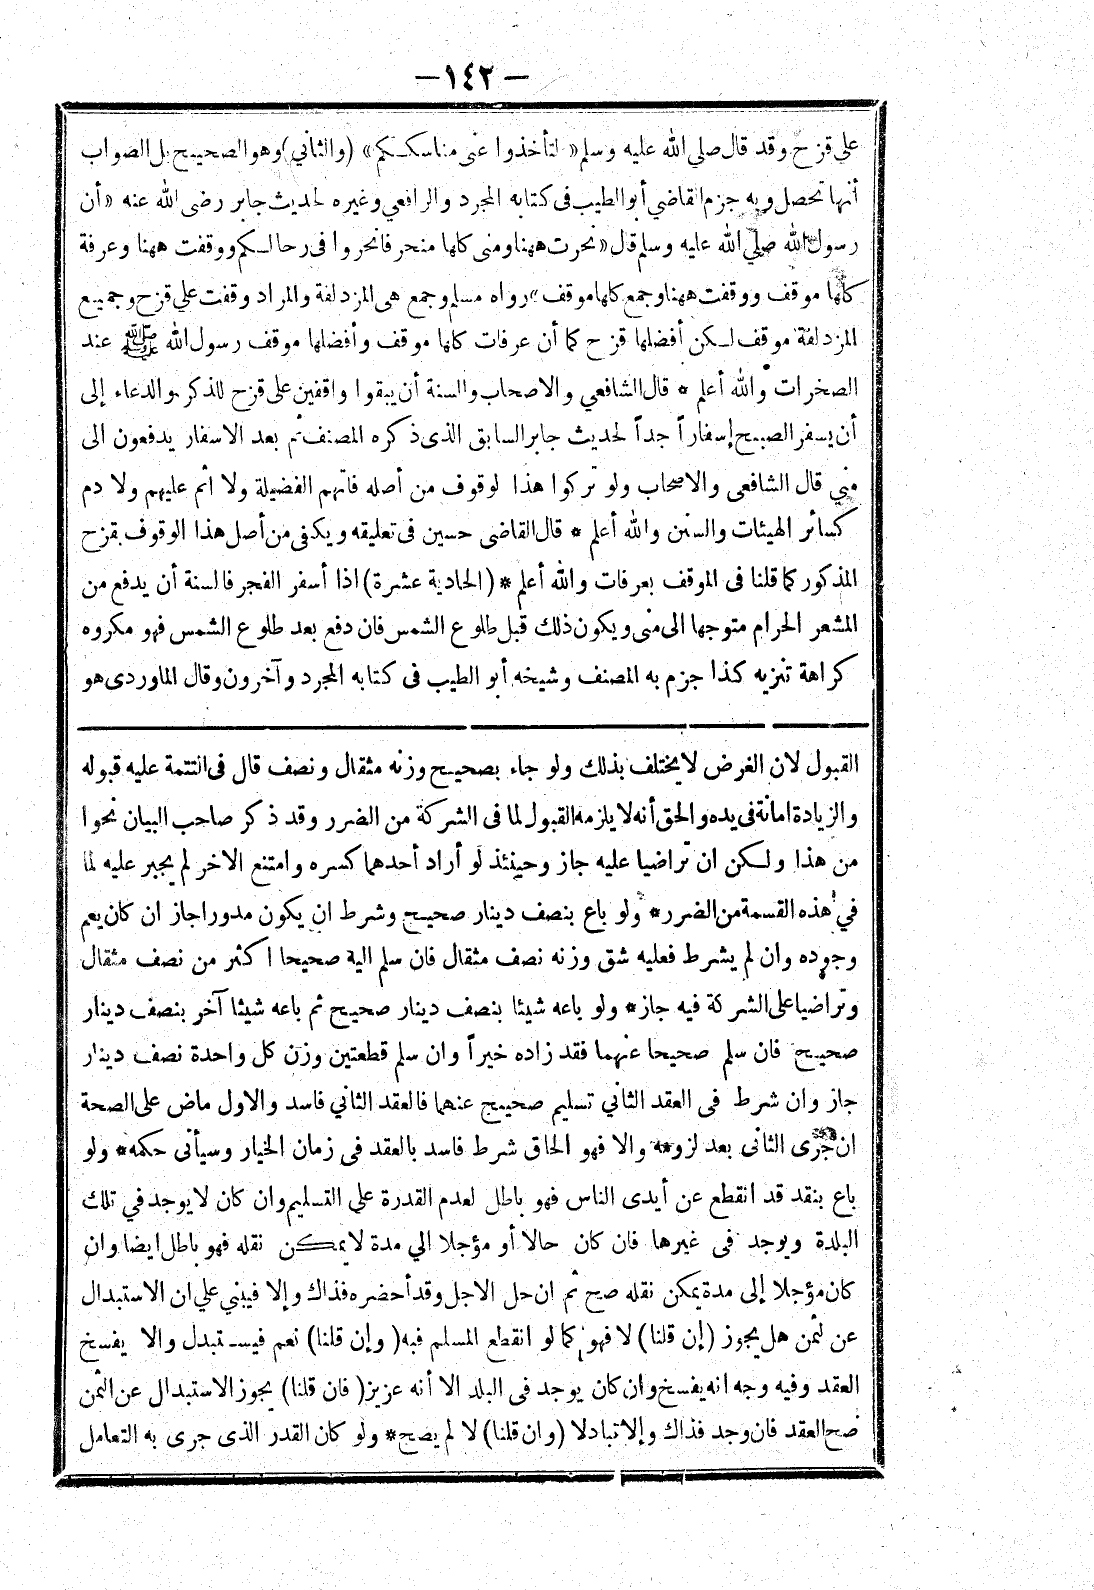 — ١٤٢ —
علي قزح وقد قال صلي الله عليه وسلم « لتأخذوا عنى مناسككم » (والثاني) وهو الصحيح بل الصواب
أنها تحصل وبه جزم القاضي أبو الطيب فى كتابه المجرد والرافعي وغيره لحديث جابر رضى الله عنه « أن
رسول الله صلي الله عليه وسلم قال « نحرت ههنا ومنى كلها منحر فانحروا فى رحالكم ووقفت ههنا وعرفة
كلها موقف ووقفت ههنا وجمع كلها موقف » رواه مسلم وجمع هى المزدلفة والمراد وقفت علي قزح وجميع
المزدلفة موقف لكن أفضلها قزح كما أن عرفات كلها موقف وأفضلها موقف رسول الله ﷺ عند
الصخرات والله أعلم * قال الشافعي والاصحاب والسنة أن يبقوا واقفين على قزح للذكر والدعاء إلى
أن يسفر الصبح إسفاراً جداً لحديث جابر السابق الذى ذكره المصنف ثم بعد الاسفار يدفعون الى
منى قال الشافعى والاصحاب ولو تركوا هذا لوقوف من أصله فاتهم الفضيلة ولا اثم عليهم ولا دم
كسائر الهيئات والسنن والله أعلم * قال القاضى حسين فى تعليقه ويكفى من أصل هذا الوقوف بقزح
المذكور كما قلنا فى الموقف بعرفات والله أعلم * (الحادية عشرة) اذا أسفر الفجر فالسنة أن يدفع من
المشعر الحرام متوجها الى منى ويكون ذلك قبل طلوع الشمس فان دفع بعد طلوع الشمس فهو مكروه
كراهة تنزيه كذا جزم به المصنف وشيخه أبو الطيب فى كتابه المجرد وآخرون وقال الماوردى هو
القبول لان الغرض لا يختلف بذلك ولو جاء بصحيح وزنه مثقال ونصف قال فى التتمة عليه قبوله
والزيادة امانة فى يده والحق أنه لا يلزمه القبول لما فى الشركة من الضرر وقد ذكر صاحب البيان نحوا
من هذا ولكن ان تراضيا عليه جاز وحينئذ لو أراد أحدهما كسره وامتنع الاخر لم يجبر عليه لما
في هذه القسمة من الضرر * ولو باع بنصف دينار صحيح وشرط ان يكون مدورا جاز ان كان يعم
وجوده وان لم يشرط فعليه شق وزنه نصف مثقال فان سلم الية صحيحا اكثر من نصف مثقال
وتراضيا على الشركة فيه جاز * ولو باعه شيئا بنصف دينار صحيح ثم باعه شيئا آخر بنصف دينار
صحيح فان سلم صحيحا عنهما فقد زاده خيراً وان سلم قطعتين وزن كل واحدة نصف دينار
جاز وان شرط فى العقد الثاني تسليم صحيح عنهما فالعقد الثاني فاسد والاول ماض على الصحة
ان جرى الثانى بعد لزومه والا فهو الحاق شرط فاسد بالعقد فى زمان الخيار وسيأتى حكمه * ولو
باع بنقد قد انقطع عن أيدى الناس فهو باطل لعدم القدرة علي التسليم وان كان لا يوجد في تلك
البلدة ويوجد فى غيرها فان كان حالا أو مؤجلا الي مدة لا يمكن نقله فهو باطل ايضا وان
كان مؤجلا إلى مدة يمكن نقله صح ثم ان حل الاجل وقد أحضره فذاك وإلا فيبني علي ان الاستبدال
عن لثمن هل يجوز (إن قلنا) لا فهو كما لو انقطع المسلم فيه (وإن قلنا) نعم فيستبدل والا يفسخ
العقد وفيه وجه انه يفسخ وان كان يوجد فى البلد الا أنه عزيز (فان قلنا) يجوز الاستبدال عن الثمن
صح العقد فان وجد فذاك وإلا تبادلا (وان قلنا) لا لم يصح * ولو كان القدر الذى جرى به التعامل